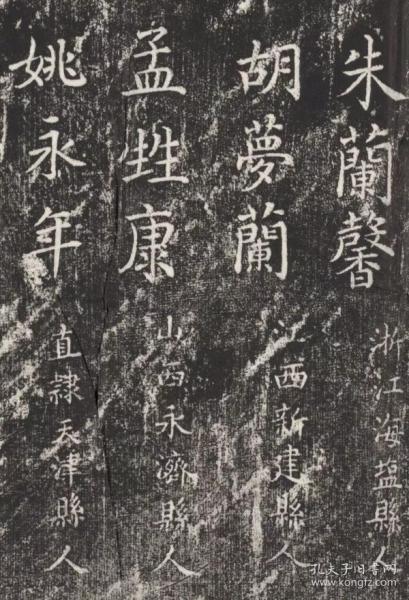 朱蘭馨 浙江海塩縣人
胡夢蘭 江西新建縣人
孟甡康 山西永濟縣人
姚永年 直隸天津縣人
孔夫子旧书网
www.kongfz.com